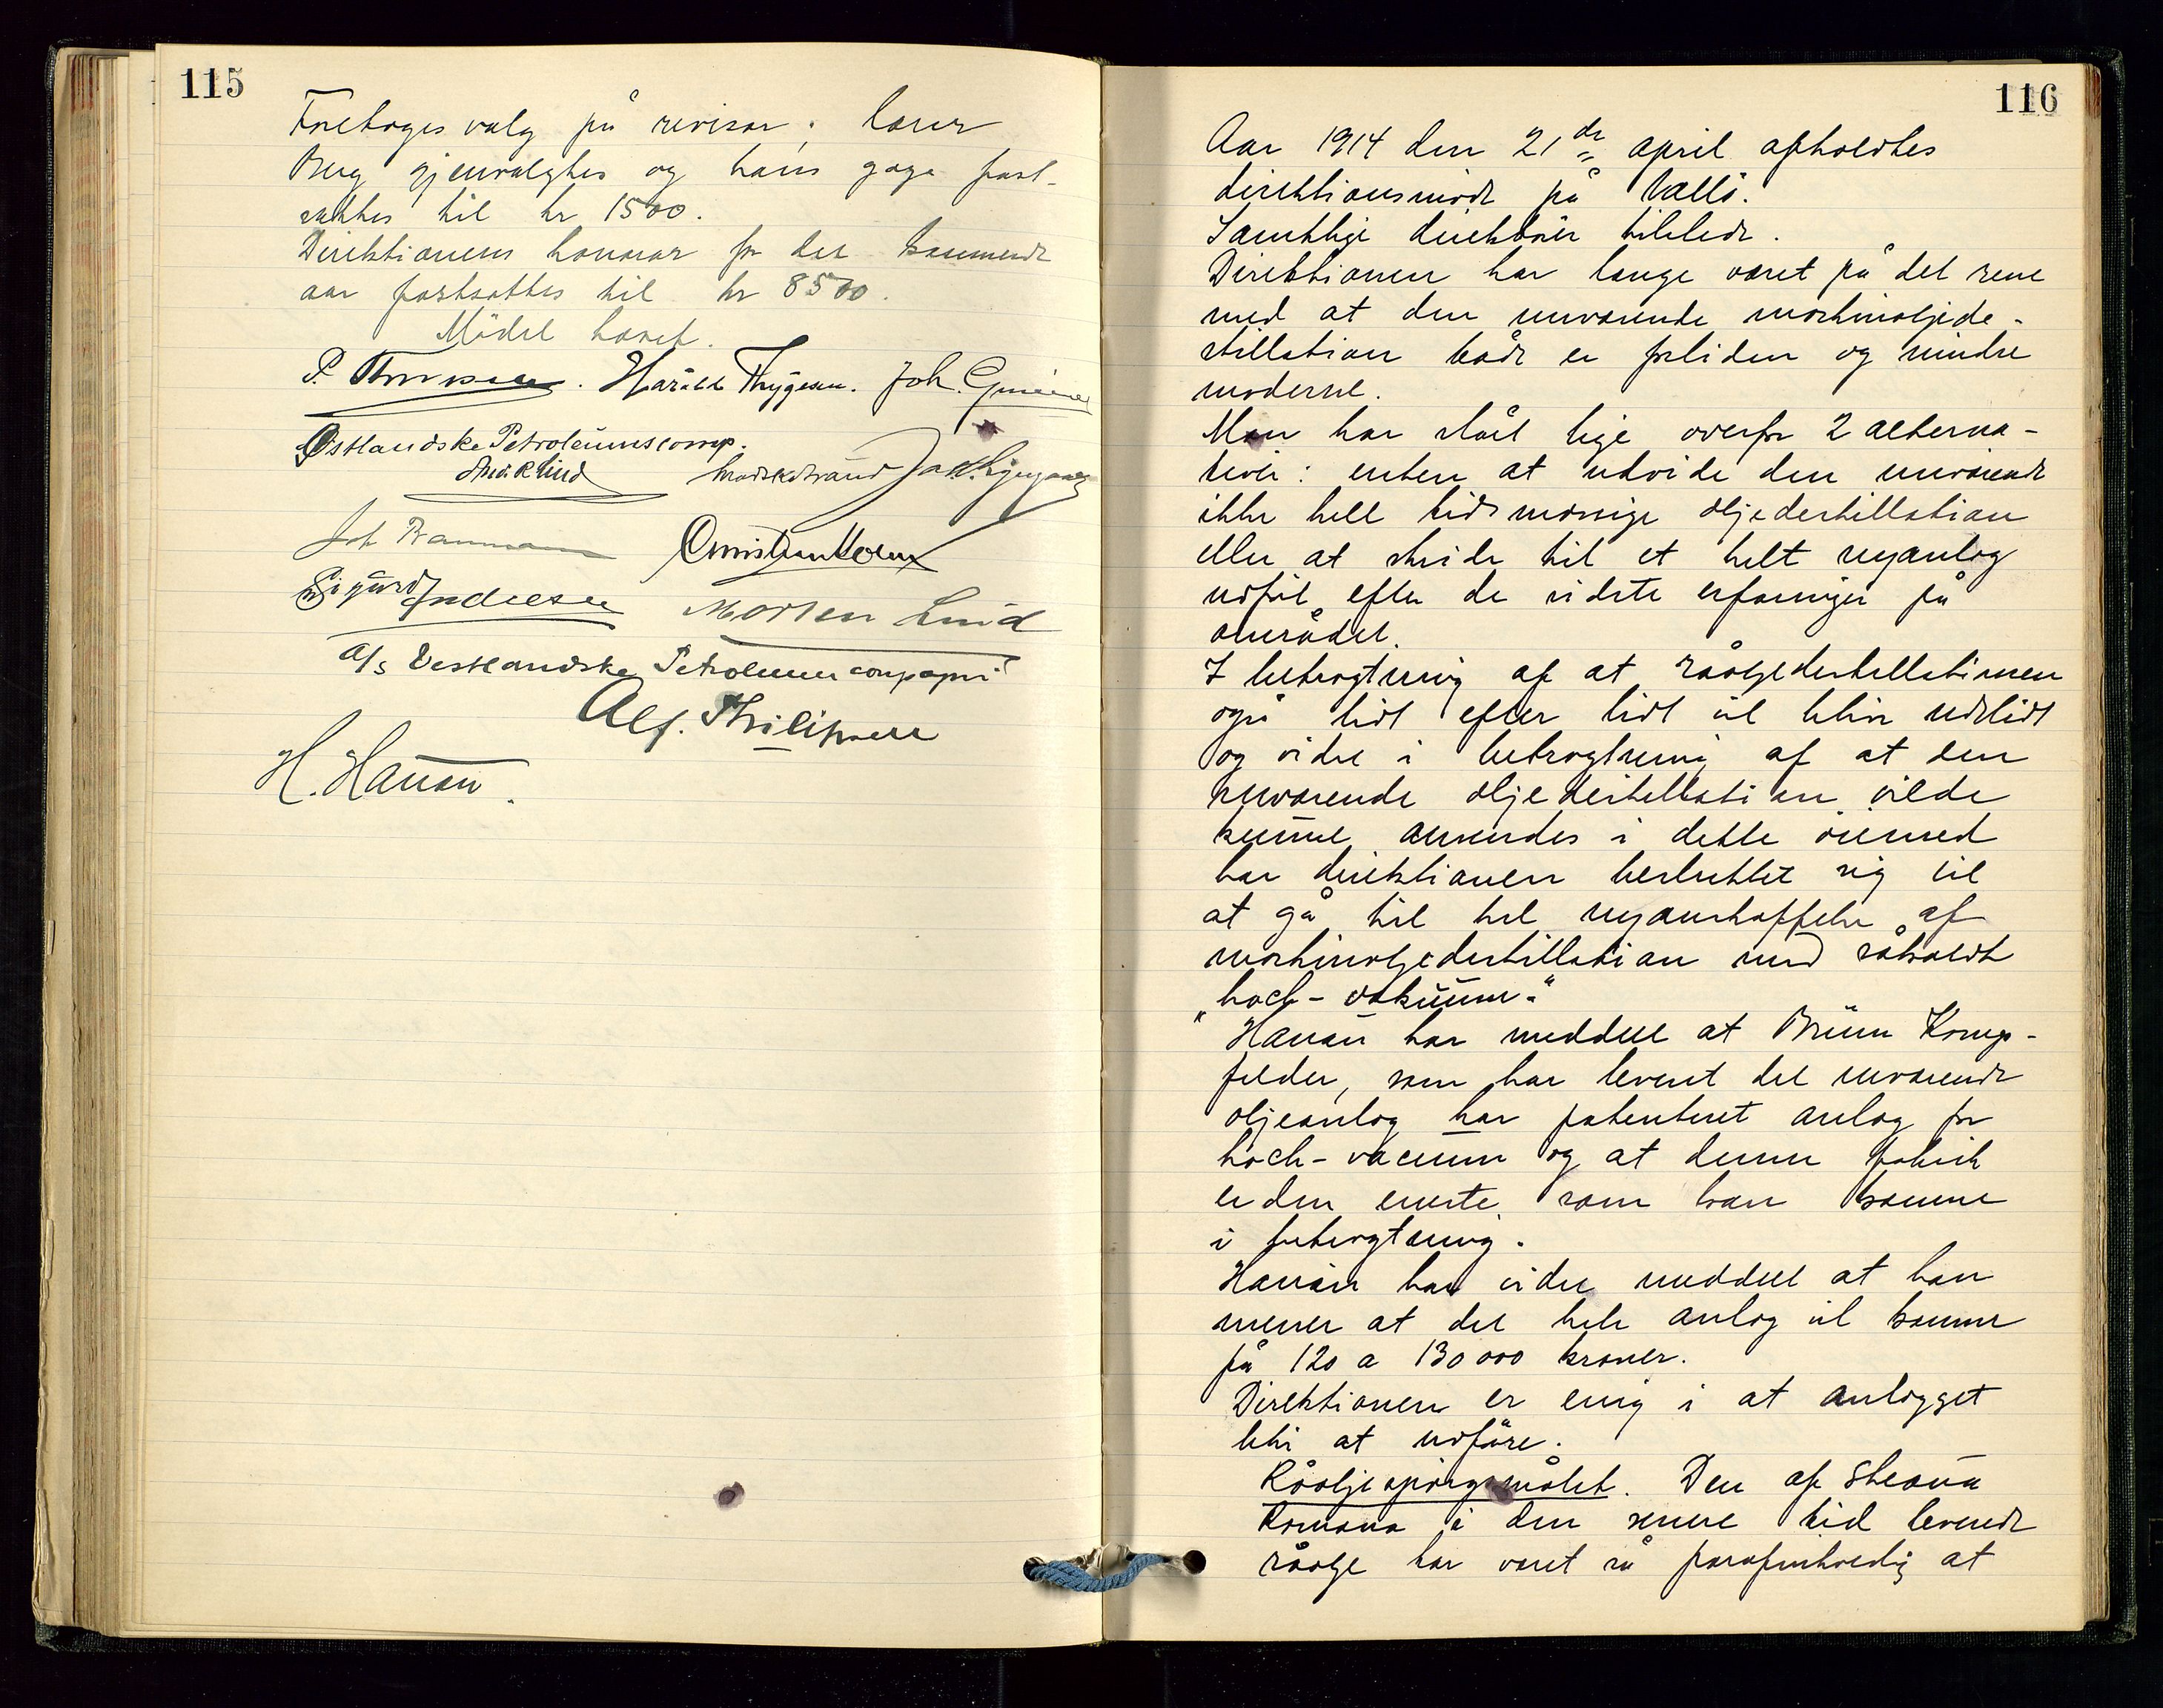 115
Foretoges valg på revisor. Carur
Berg gjenvalgtes og hans gage fast-
sattes til kr 1500.
Direktionens honorar for det kommende
aar fastsattes til kr 8500.
Mödet hævet.
Harald Thygesen. Joh.
Østlandske Petroleumscomp.
Joh
Sigurd Christian Holm
Morten Lind
A/s Vestlandske Petroleumcompagni
Alf. Philipsen
H. Hanau.
116
Aar 1914 den 21de april afholdtes
direktionsmöde på Vallö.
Samtlige direktörer tilstede.
Direktionen har længe været på det rene
med at den nuværende maskinoljede-
stillation både er forliden og mindre
moderne.
Man har stået lige overfor 2 alterna-
tiver: enten at udvide den nuværende
ikke helt tidsmæssige oljedestillation
eller at skride til et helt nyanlæg
udfört efter de sidste erfaringer på
området.
I betragtning af at råoljedestillationen
også lidt efter lidt vil blive udslidt
og videre i betragtning af at den
nuværende oljedestillation vilde
kunne anvendes i dette öiemed
har direktionen besluttet sig til
at gå til hel nyanskaffelse af
maskinoljedestillation med såkaldt
„hoch-vakuum."
Hanau har meddelt at Brünn Königs-
felder, som har leveret det nuværende
oljeanlæg har patenteret anlæg for
hoch-vacuum og at denne fabrik
er den eneste som kan komme
i betragtning.
Hanau har videre meddelt at han
mener at det hele anlæg vil komme
på 120 a 130000 kroner.
Direktionen er enig i at anlægget
blir at udföre.
Råoljespörgsmålet. Den af Steaua
Romana i den senere tid leverede
råolje har været så parafinholdig at